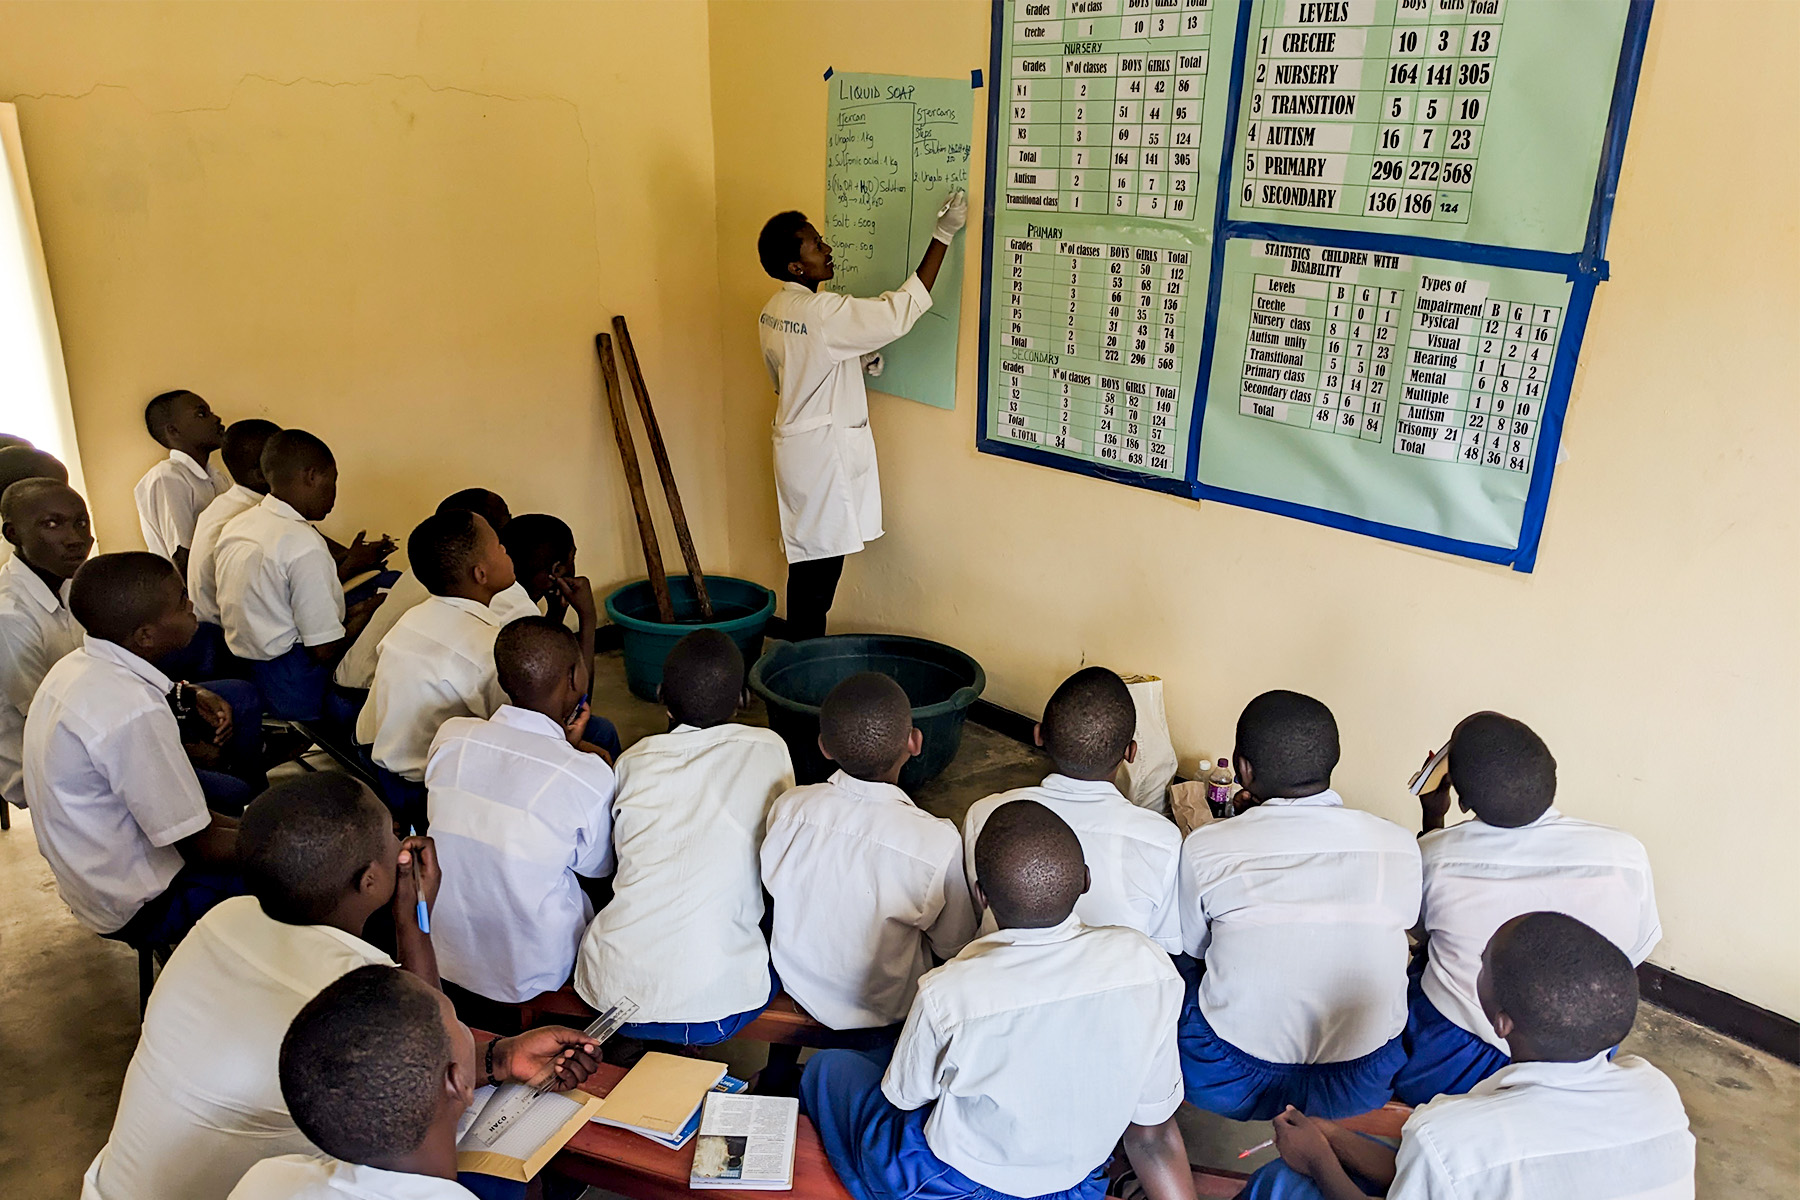 LIQUID SOAP
1 Jercan
1. Ungalo : 1 kg
2. Sulfonic acid : 1 kg
3. (NaOH + H2O) Solution
4. Salt : 500g
Sugar : 50g
5 Jercans
Steps
1. Solution
2. Ungalo + Salt
Grades Nº of class BOYS GIRLS Total
Creche 1 10 3 13
NURSERY
Grades Nº of classes BOYS GIRLS Total
N 1 2 44 42 86
N 2 2 51 44 95
N3 3 69 55 124
Total 7 164 141 305
Autism 2 16 7 23
Transitional class 1 5 5 10
PRIMARY
Grades Nº of classes BOYS GIRLS Total
P1 3 62 50 112
P2 3 53 68 121
P3 3 66 70 136
P4 2 40 35 75
P5 2 31 43 74
P6 2 20 30 50
Total 15 272 296 568
SECONDARY
Grades Nº of classes BOYS GIRLS Total
S1 3 58 82 140
S2 3 54 70 124
S3 2 24 33 57
Total 8 136 186 322
G.TOTAL 34 603 638 1241
LEVELS Boys Girls Total
1 CRECHE 10 3 13
2 NURSERY 164 141 305
3 TRANSITION 5 5 10
4 AUTISM 16 7 23
5 PRIMARY 296 272 568
6 SECONDARY 136 186 124
STATISTICS CHILDREN WITH
DISABILITY
Levels B G T
Creche 1 0 1
Nursery class 8 4 12
Autism unity 16 7 23
Transitional 5 5 10
Primary class 13 14 27
Secondary class 5 6 11
Total 48 36 84
Types of
impairment B G T
Pysical 12 4 16
Visual 2 2 4
Hearing 1 1 2
Mental 6 8 14
Multiple 1 9 10
Autism 22 8 30
Trisomy 21 4 4 8
Total 48 36 84
HACO